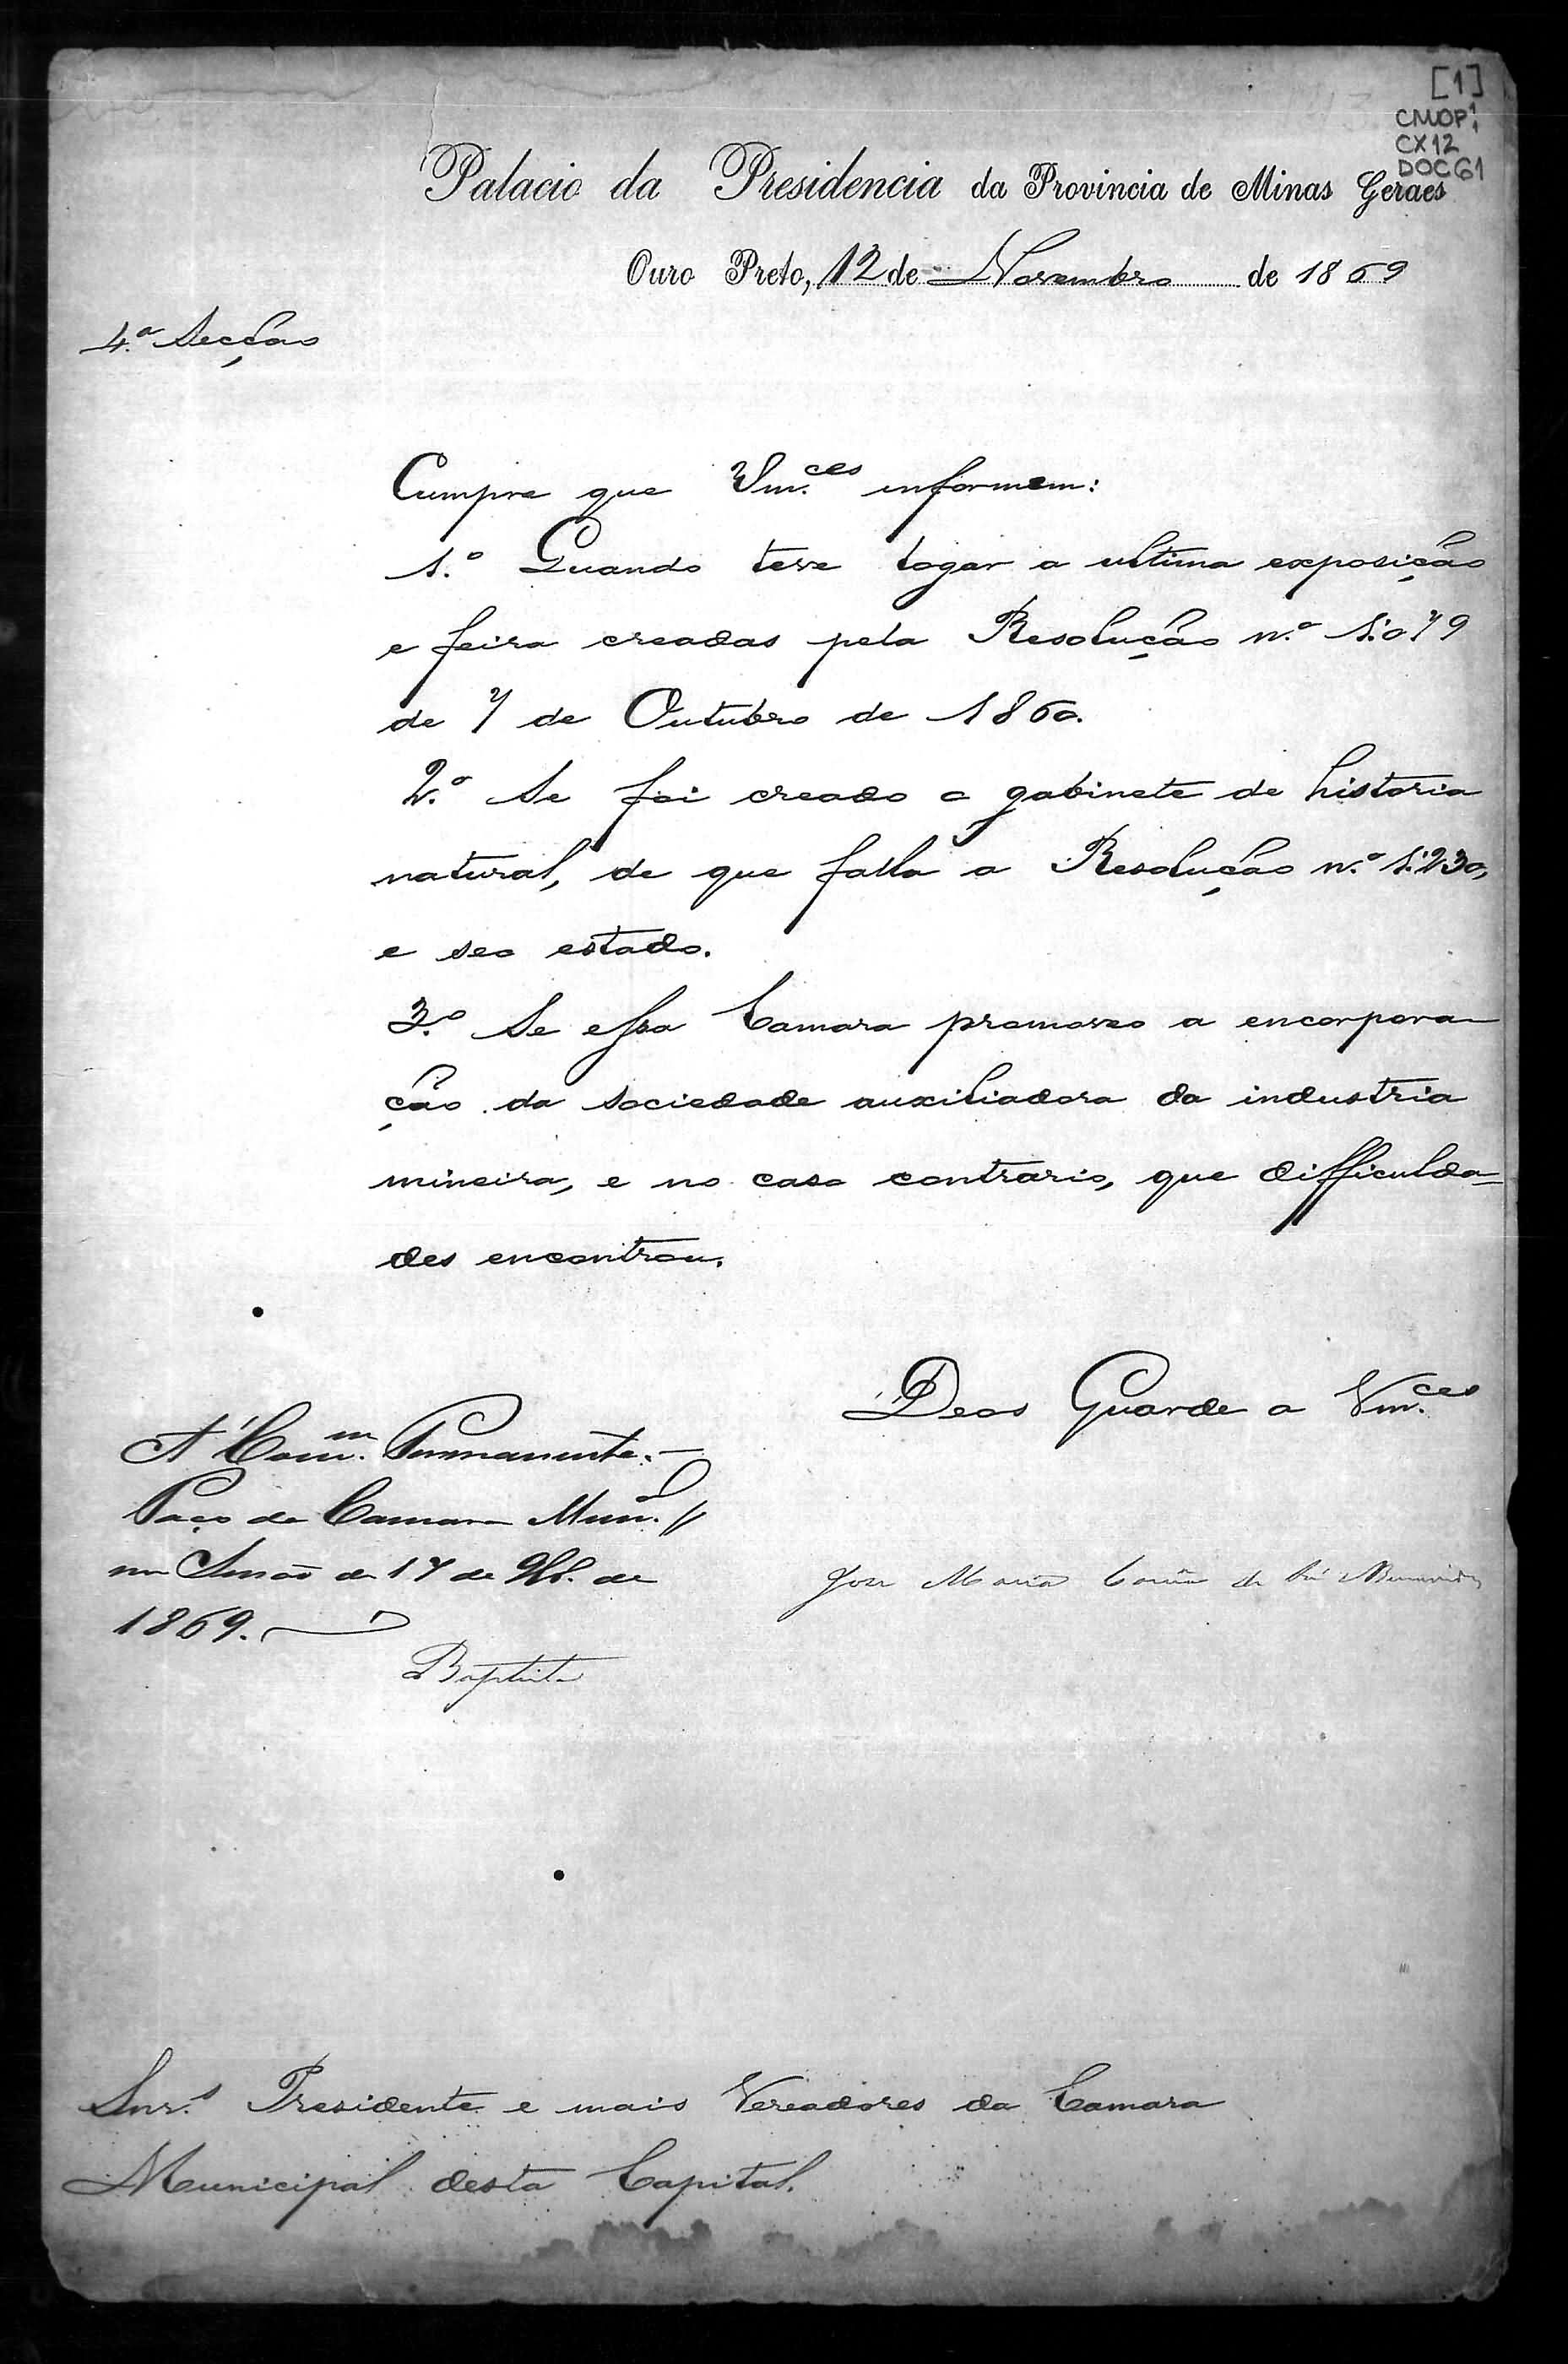 [1]
CMOP 1
CX12
DOC61
Palacio da Presidencia da Provincia de Minas Geraes
Ouro Preto, 12 de Novembro de 1869
4.ª Secção
Cumpre que Vm.ces informem:
1.º Quando teve logar a ultima exposição
e feira creadas pela Resolução n.º 1:079
de 7 de Outubro de 1860.
2.º Se foi creado o gabinete de historia
natural, de que falla a Resolução n.º 1:230,
e seo estado.
3.º Se essa Camara promoveo a encorpora-
ção da sociedade auxiliadora da industria
mineira, e no caso contrario, que difficulda=
des encontrou.
Deos Guarde a Vm.ces
A' Com.m Permanente.—
Paço da Camara Mun.al
em Sessão de 17 de 9br.º de
1869.
Baptista
José Maria Corrêa de Sá e Benevides
Snr.s Presidente e mais Vereadores da Camara
Municipal desta Capital.